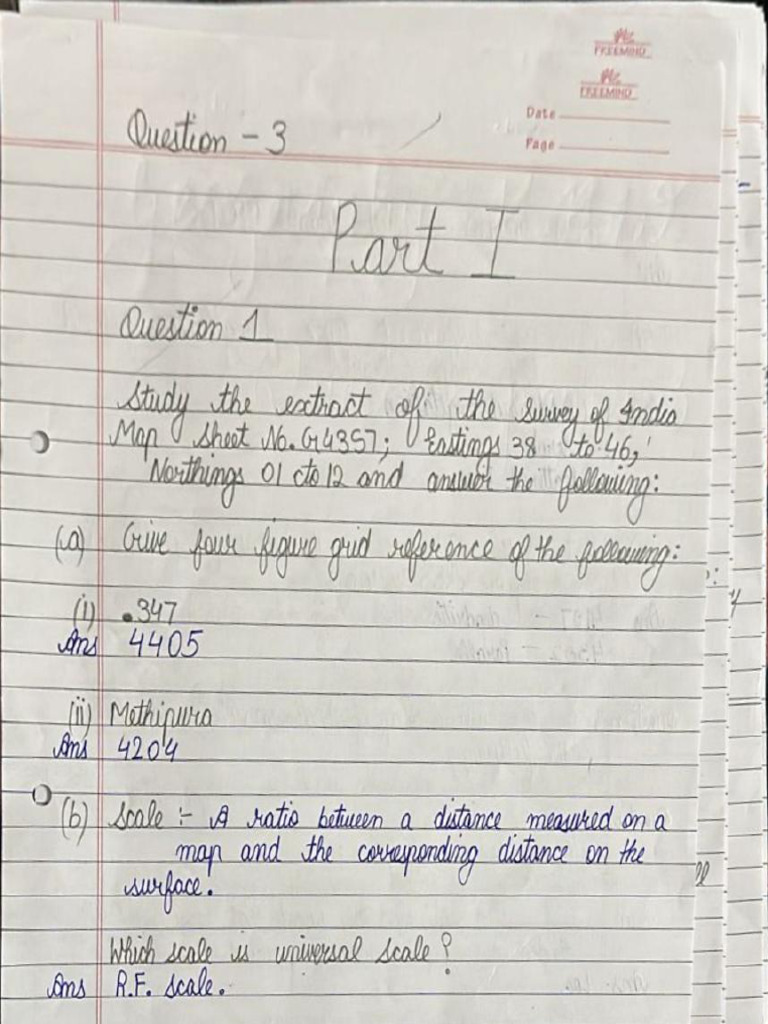 FREEMIND
FREEMIND
Date
Page
Question - 3
Part I
Question 1
Study the extract of the Survey of India
Map Sheet No. G43S7; Eastings 38 to 46,
Northings 01 to 12 and answer the following:
(a) Give four figure grid reference of the following:
(i) .347
Ans 4405
(ii) Methipura
Ans 4204
(b) Scale :- A ratio between a distance measured on a
map and the corresponding distance on the
surface.
Which scale is universal scale?
Ans R.F. Scale.